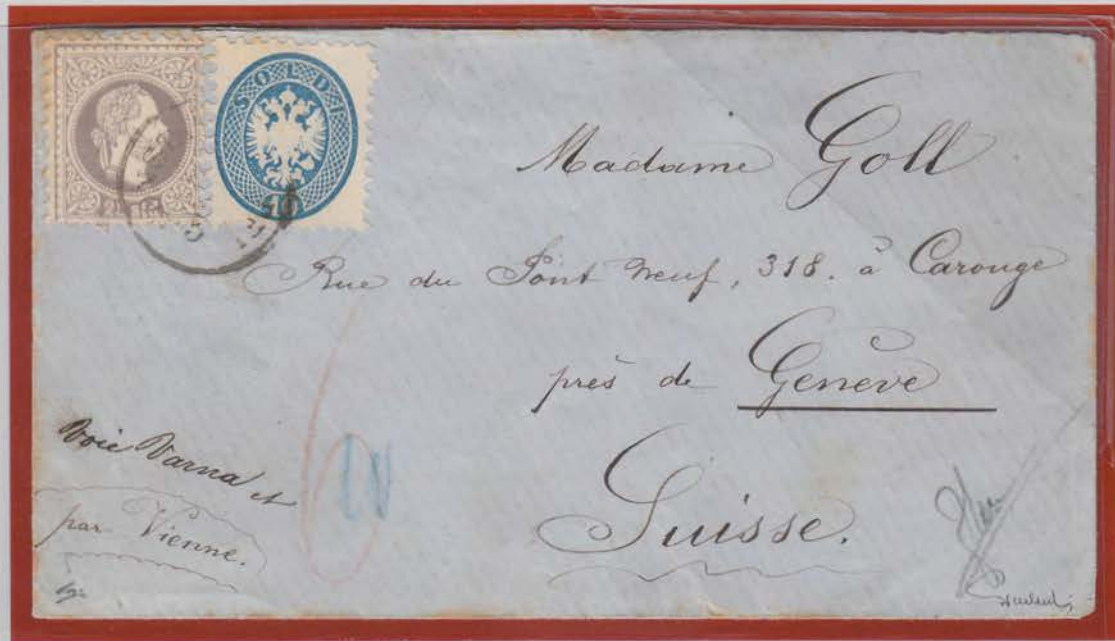 SOLDI
10
Madame Goll
Rue du Pont Neuf, 318. à Carouge
près de Genève
Suisse.
Voie Varna et
par Vienne.